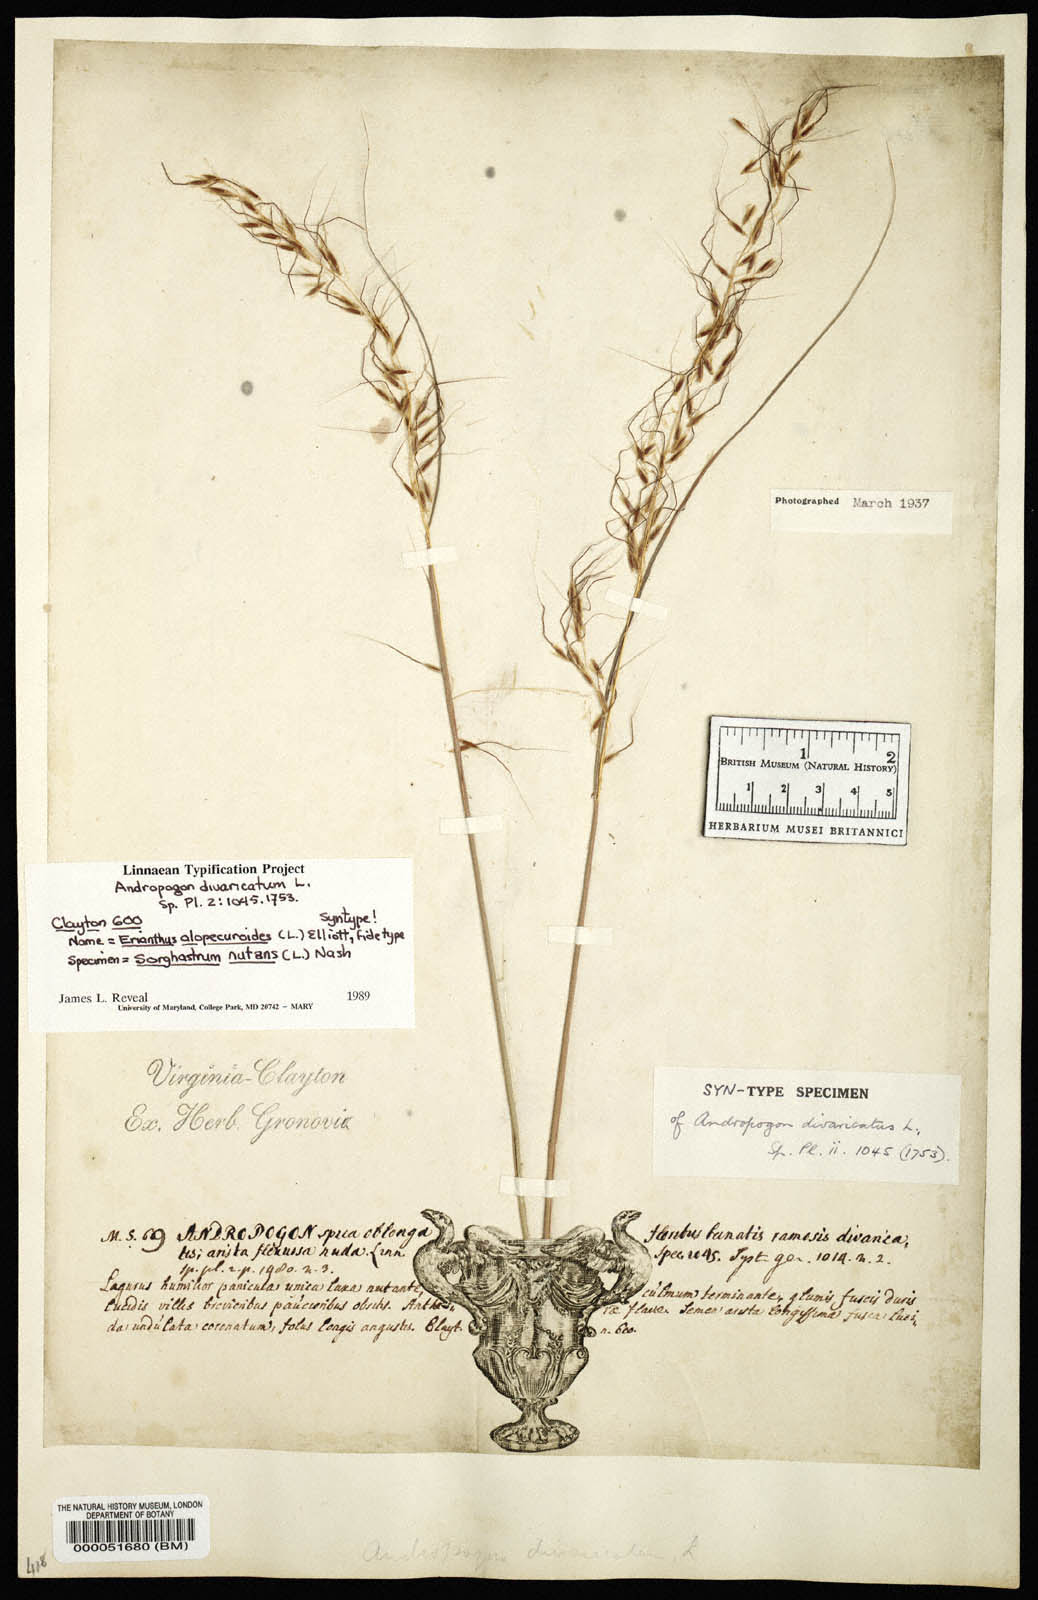 Photographed March 1937
1 2
BRITISH MUSEUM (NATURAL HISTORY)
1 2 3 4 5
HERBARIUM MUSEI BRITANNICI
Linnaean Typification Project
Andropogon divaricatum L.
Sp. Pl. 2:1045.1753.
Clayton 600 Syntype!
Name = Erianthus alopecuroides (L.) Elliott, fide type
Specimen = Sorghastrum nutans (L.) Nash
James L. Reveal 1989
University of Maryland, College Park, MD 20742 – MARY
Virginia-Clayton
Ex. Herb. Gronovic
SYN-TYPE SPECIMEN
of Andropogon divaricatus L.,
Sp. Pl. ii. 1045 (1753).
M.S. 69 ANDROPOGON spica oblonga floribus lanatis ramosis divarica,
tis; arista flexuosa nuda. Linn spec. 1045. Syst. gen. 1014. n. 2.
sp. pl. 2. p. 1480. n. 3.
Lagurus humilior panicula unica laxa nutante, culmum terminante, glumis fuscis duris
lucidis villis brevioribus paucioribus obsitis. Anthe flavæ. Semen arista longissima fusca luci,
da undulata coronatum, folus longis angustis. Clayt. n. 600.
THE NATURAL HISTORY MUSEUM, LONDON
DEPARTMENT OF BOTANY
000051680 (BM)
418
Andropogon divaricatum, L